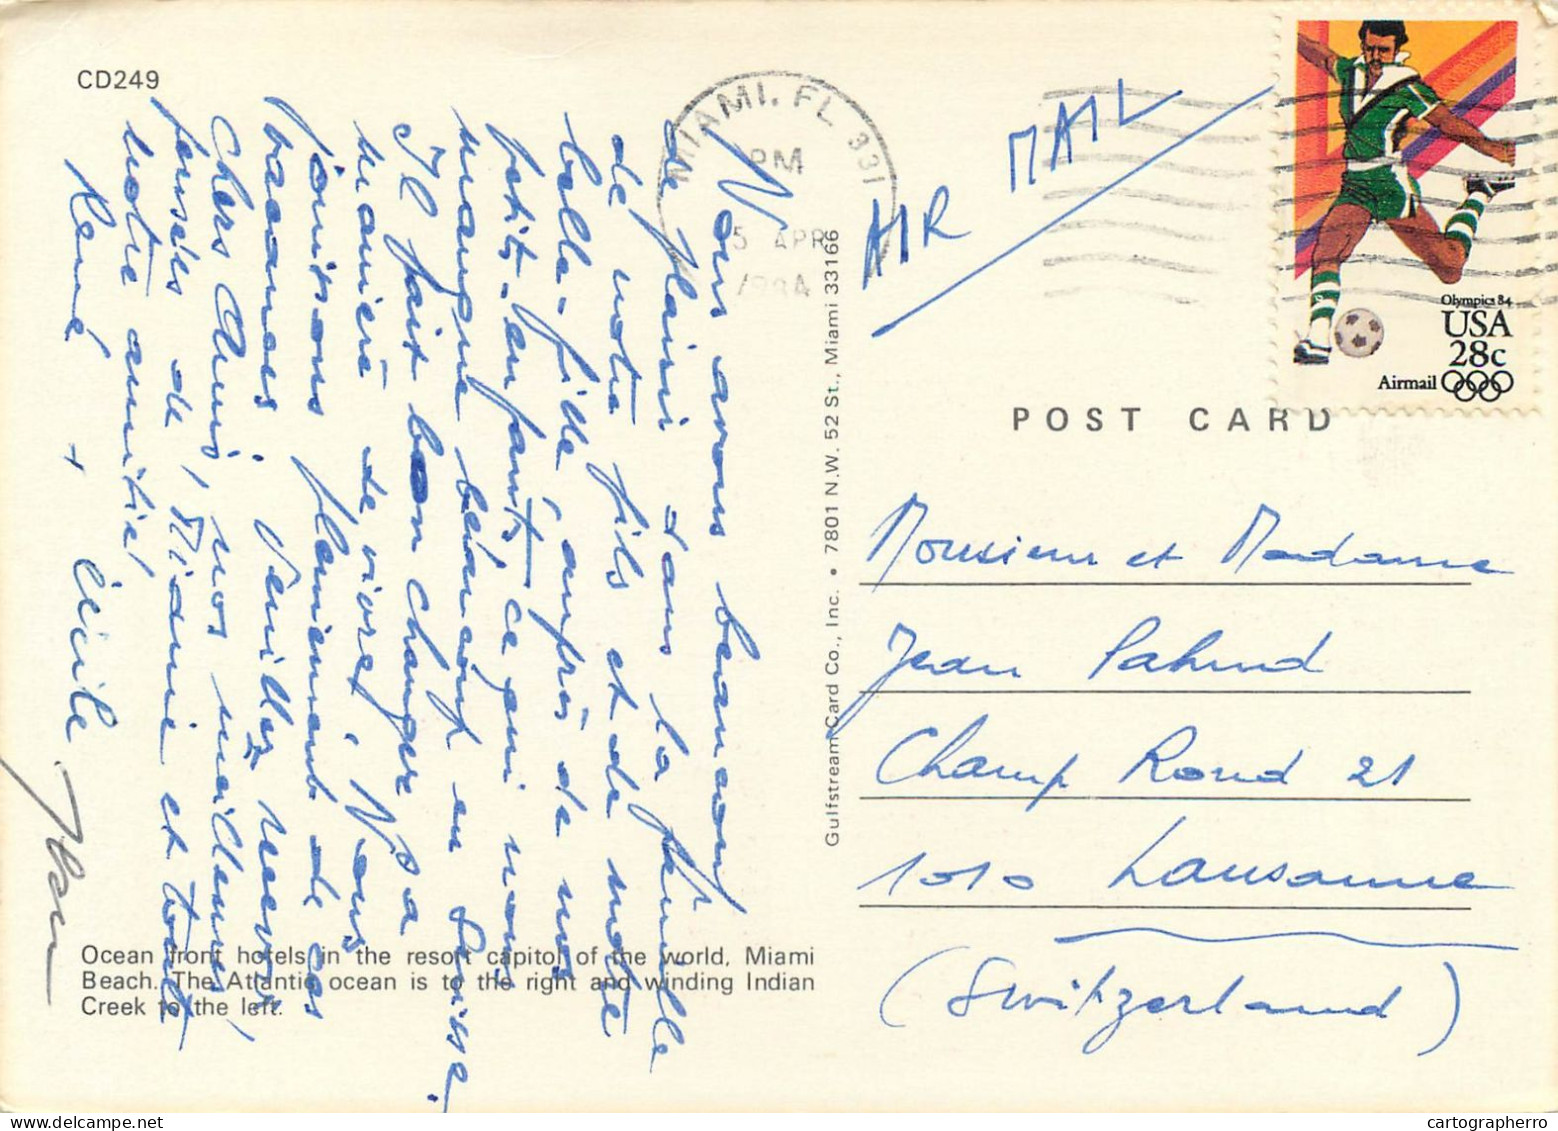 CD249
MIAMI, FL 331
PM
5 APR
1984
AIR MAIL
Olympics 84
USA
28c
Airmail
POST CARD
Nous avons beaucoup
de plaisir dans la famille
de notre fils et de notre
belle-fille, auprès de nos
petits-enfants, ce qui nous
manque beaucoup en Suisse.
Il fait bon changer sa
manière de vivre! Nous
jouissons pleinement de ces
vacances. Veuillez recevoir
Chers Amis, nos meilleures
pensées de Miami et toute
notre amitié!
René + Cécile
Gulfstream Card Co., Inc. • 7801 N.W. 52 St., Miami 33166
Monsieur et Madame
Jean Pahud
Champ Rond 21
1010 Lausanne
(Switzerland)
Ocean front hotels in the resort capitol of the world, Miami
Beach. The Atlantic ocean is to the right and winding Indian
Creek to the left.
cartographerro